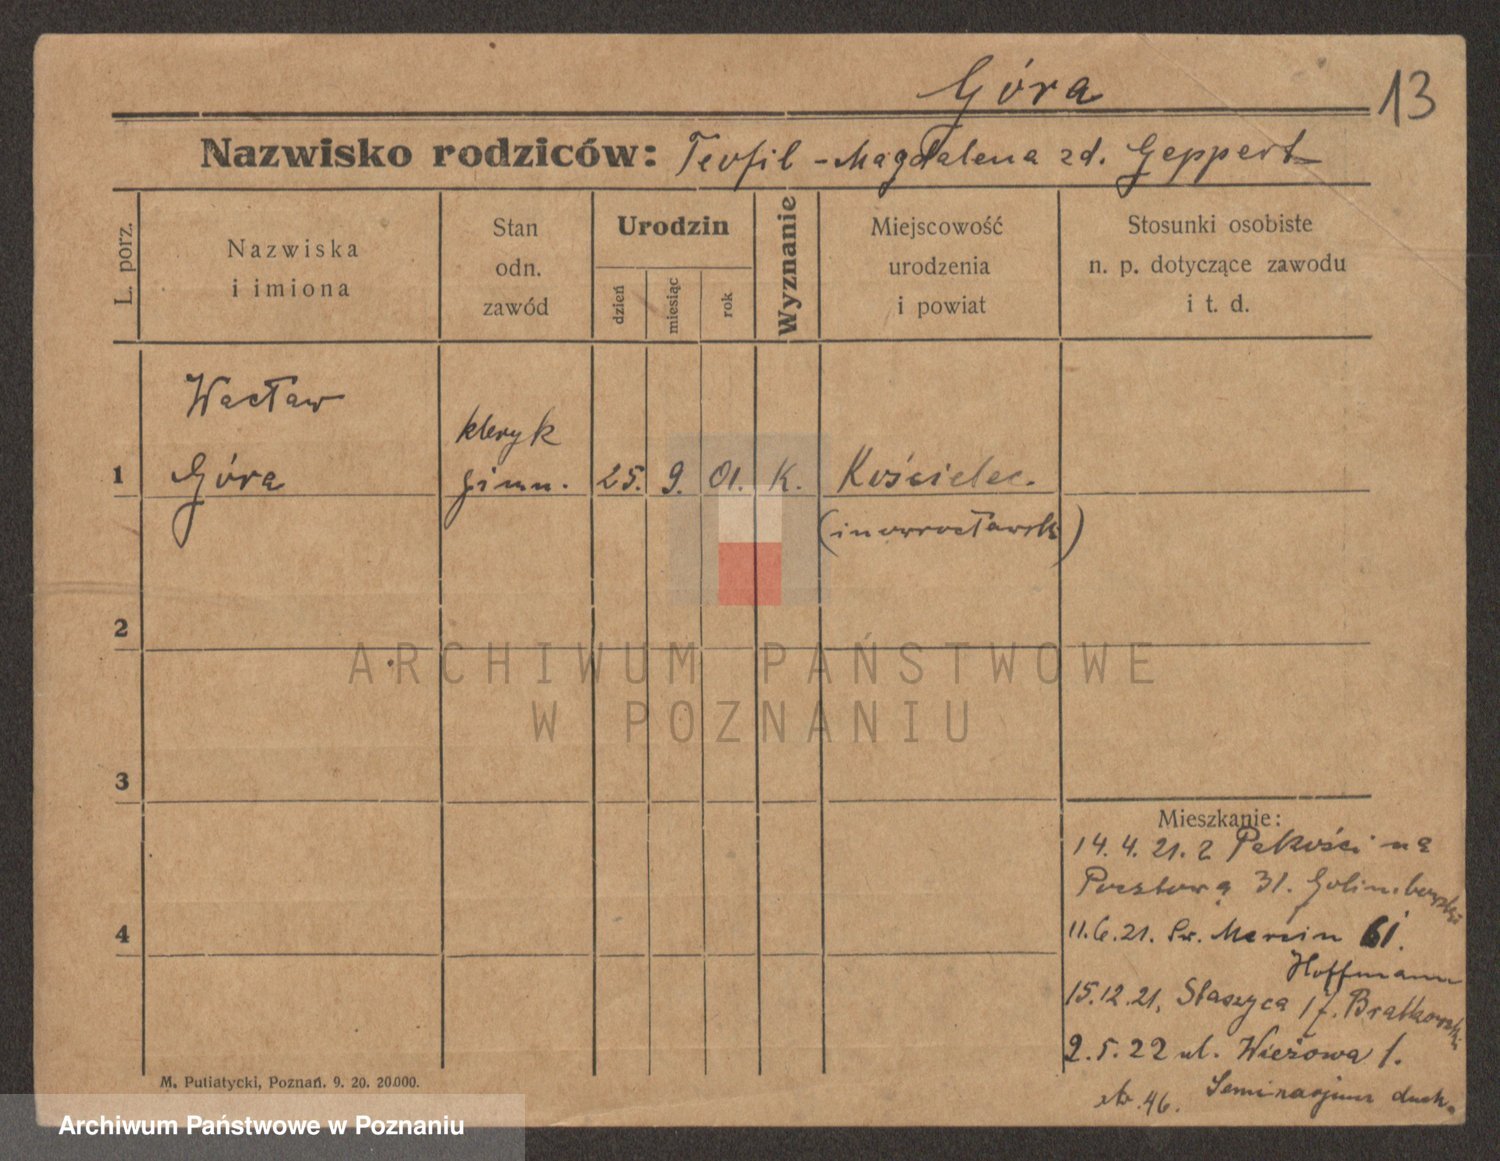 Góra
13
Nazwisko rodziców: Teofil - Magdalena zd. Geppert
L. porz.
Nazwiska
i imiona
Stan
odn.
zawód
Urodzin
dzień
miesiąc
rok
Wyznanie
Miejscowość
urodzenia
i powiat
Stosunki osobiste
n. p. dotyczące zawodu
i t. d.
Wacław
kleryk
1 Góra gimn. 25. 9. 01. K. Kościelec.
(inowrocławsk)
2
ARCHIWUM PAŃSTWOWE
W POZNANIU
3
Mieszkanie:
14. 4. 21. z Pakości na
Pocztową 31.
4
11.6.21. Św. Marcin 61.
Hoffmann
15.12.21. Staszyca 17. Bratkowski
2.5.22 ul. Wieżowa 1.
46. Seminarjum duch.
M. Putiatycki, Poznań. 9. 20. 20.000.
Archiwum Państwowe w Poznaniu